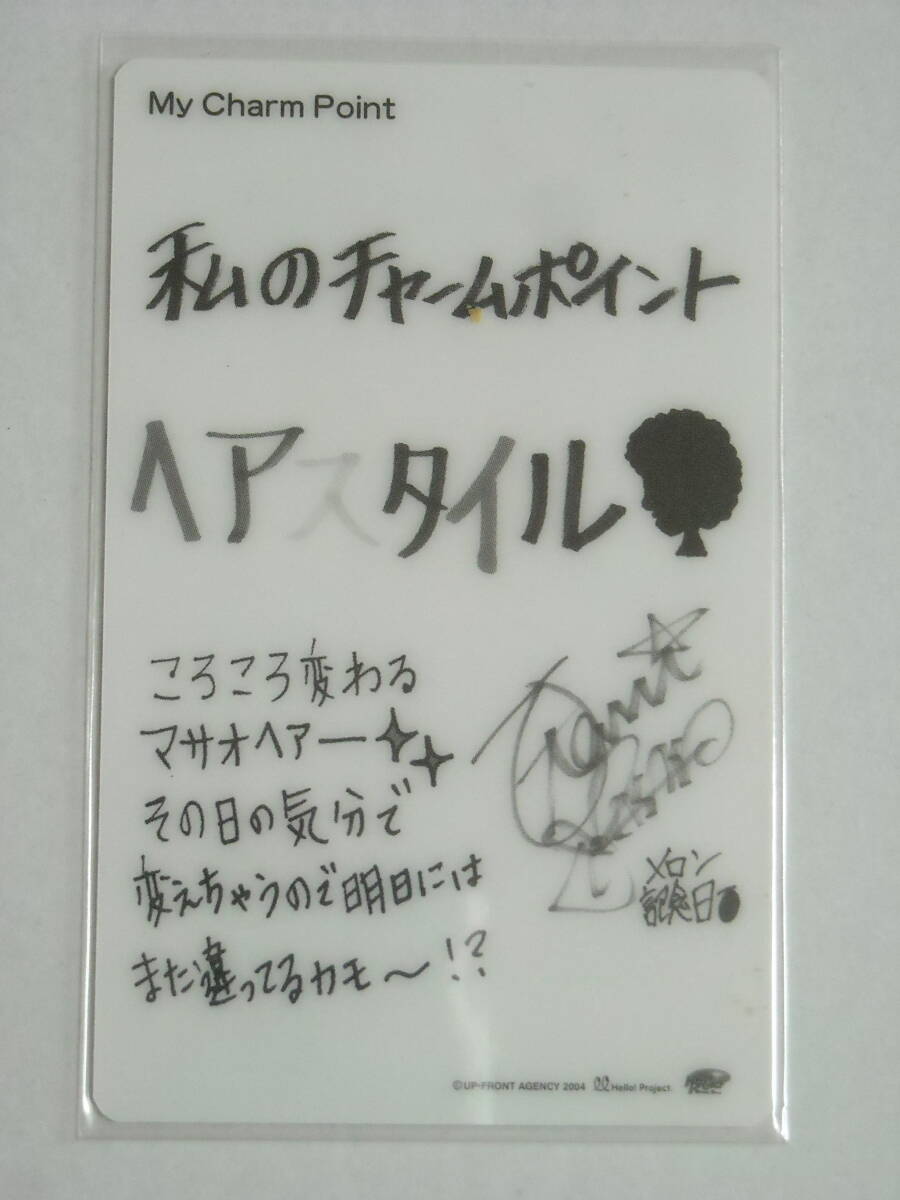 My Charm Point
私のチャームポイント
ヘアスタイル
ころころ変わる
マサオヘアー
その日の気分で
変えちゃうので明日には
また違ってるカモ〜!?
メロン
記念日
©UP-FRONT AGENCY 2004 Hello! Project.